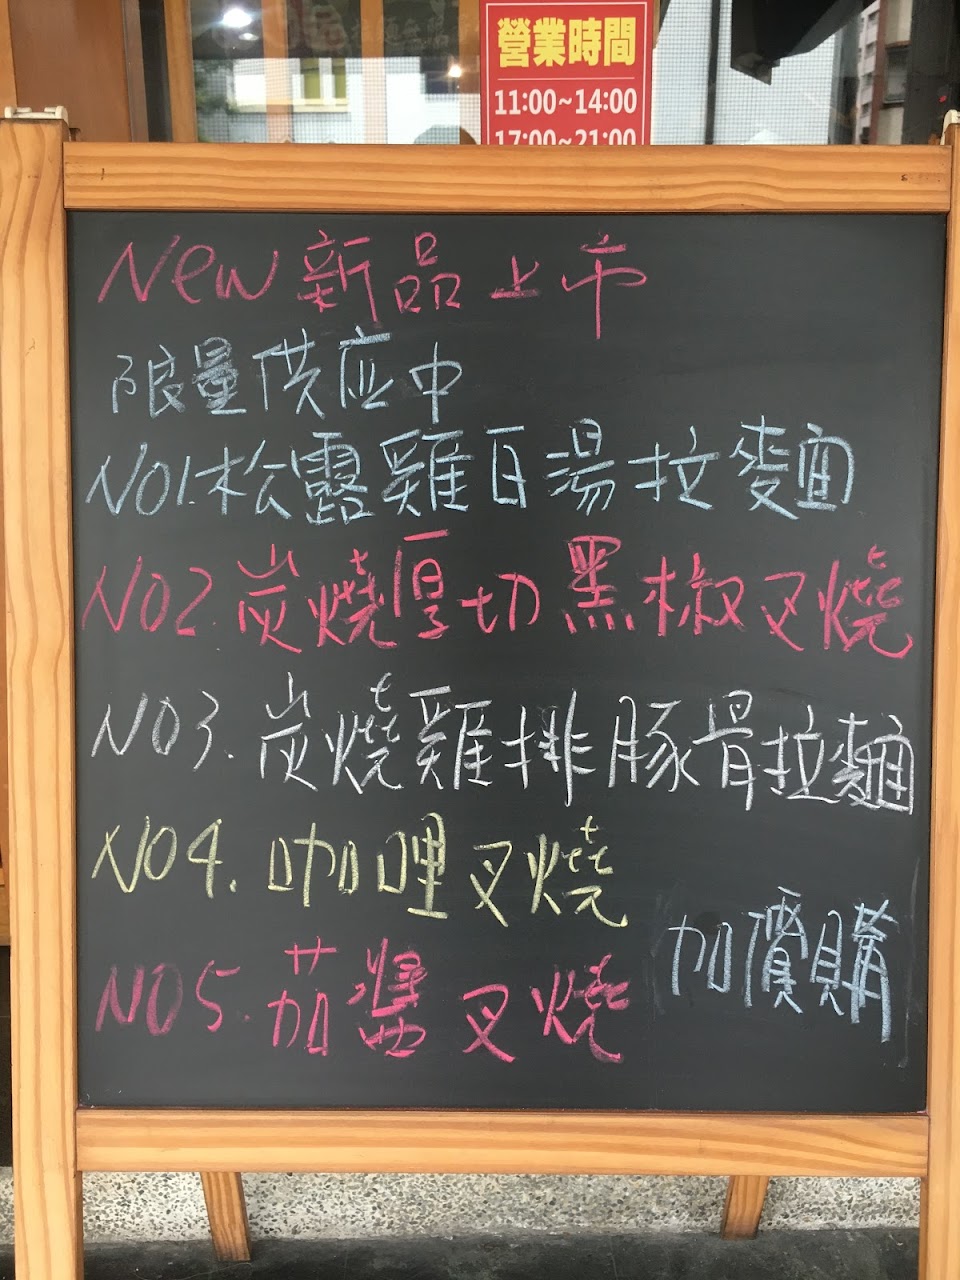 營業時間
11:00~14:00
17:00~21:00
New 新品上市
限量供应中
NO1.松露雞白湯拉麵
NO2.炭燒厚切黑椒叉燒
NO3.炭燒雞排豚骨拉麵
NO4.咖哩叉燒
NO5.茄醬叉燒
加價購